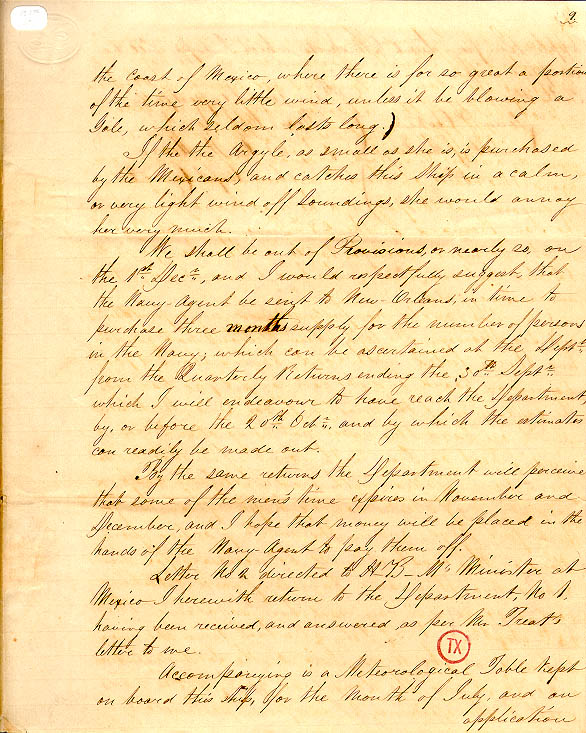 9.
the Coast of Mexico, where there is for so great a portion
of the time very little wind, unless it be blowing a
Gale, which seldom lasts long.)
If the the Argyle, as small as she is, is purchased
by the Mexicans, and catches this Ship in a calm,
or very light wind off Soundings, she would annoy
her very much.
We shall be out of Provisions, or nearly so, on
the 1st Decr, and I would respectfully suggest, that
the Navy-Agent be sent to New-Orleans, in time to
purchase three months supply for the number of persons
in the Navy; which can be ascertained at the Dept.
from the Quarterly Returns ending the 30th Septr.
which I will endeavour to have reach the Department,
by, or before the 20th Octr. and by which the estimates
can readily be made out.
By the same returns the Department will perceive
that some of the men's time expires in November and
December, and I hope that money will be placed in the
hands of the Navy-Agent to pay them off.
Letter No 2 directed to H. B. M's Minister at
Mexico I herewith return to the Department, No 1.
having been received, and answered as per Mr Treat's
letter to me.
TX
Accompanying is a Meteorological Table kept
on board this ship, for the Month of July, and an
application